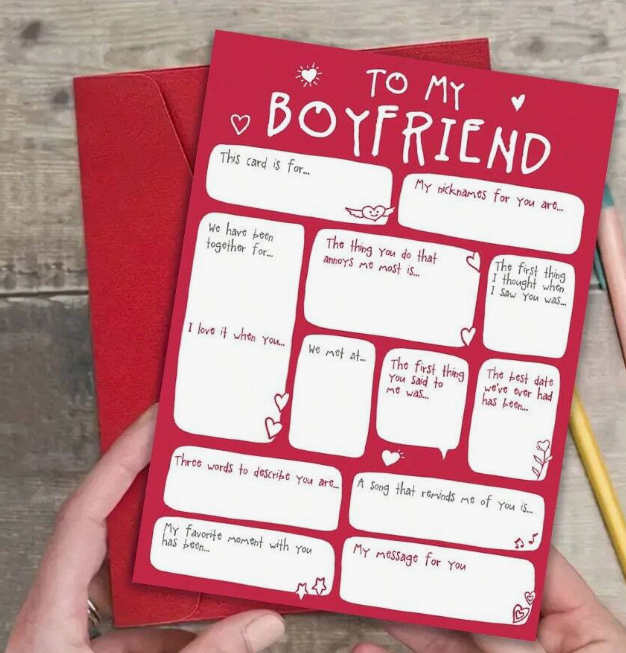 TO MY
BOYFRIEND
This card is for...
My nicknames for you are...
We have been
together for...
I love it when you...
The thing you do that
annoys me most is...
The first thing
I thought when
I saw you was...
We met at...
The first thing
you said to
me was...
The best date
we've ever had
has been...
Three words to describe you are...
A song that reminds me of you is...
My favorite moment with you
has been...
My message for you